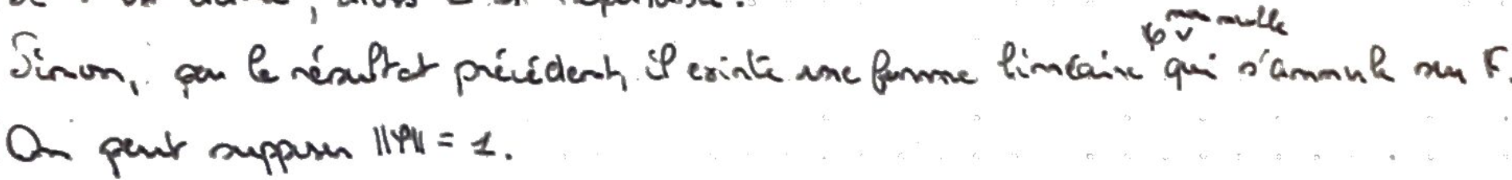 Sinon, par le résultat précédent, il existe une forme linéaire φ non nulle qui s'annule sur F.
On peut supposer ||φ|| = 1.